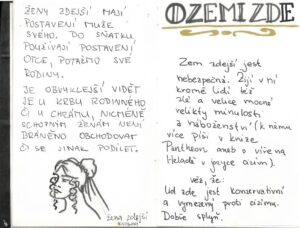 ŽENY ZDEJŠÍ MAJÍ
POSTAVENÍ MUŽE
SVÉHO. DO SŇATKU
POUŽÍVAJÍ POSTAVENÍ
OTCE, POTAŽMO SVÉ
RODINY.
JE OBVYKLEJŠÍ VIDĚT
JE U KRBU RODINNÉHO
ČI U CHRÁMU, NICMÉNĚ
SCHOPNÝM ŽENÁM NENÍ
BRÁNĚNO OBCHODOVAT
ČI SE JINAK PODÍLET.
ŽENA ZDEJŠÍ
O ZEMI ZDE
Zem zdejší jest
nebezpečná. Žijí v ní
kromě lidí též
zlé a velice mocné
relikty minulosti
a náboženství (k němu
více píši v knize
Pantheon aneb o víře na
Heladě v pryce cizím).
věz, že:
Lid zde jest konservativní
a vymezený proti cizímu.
Dobře splyň.